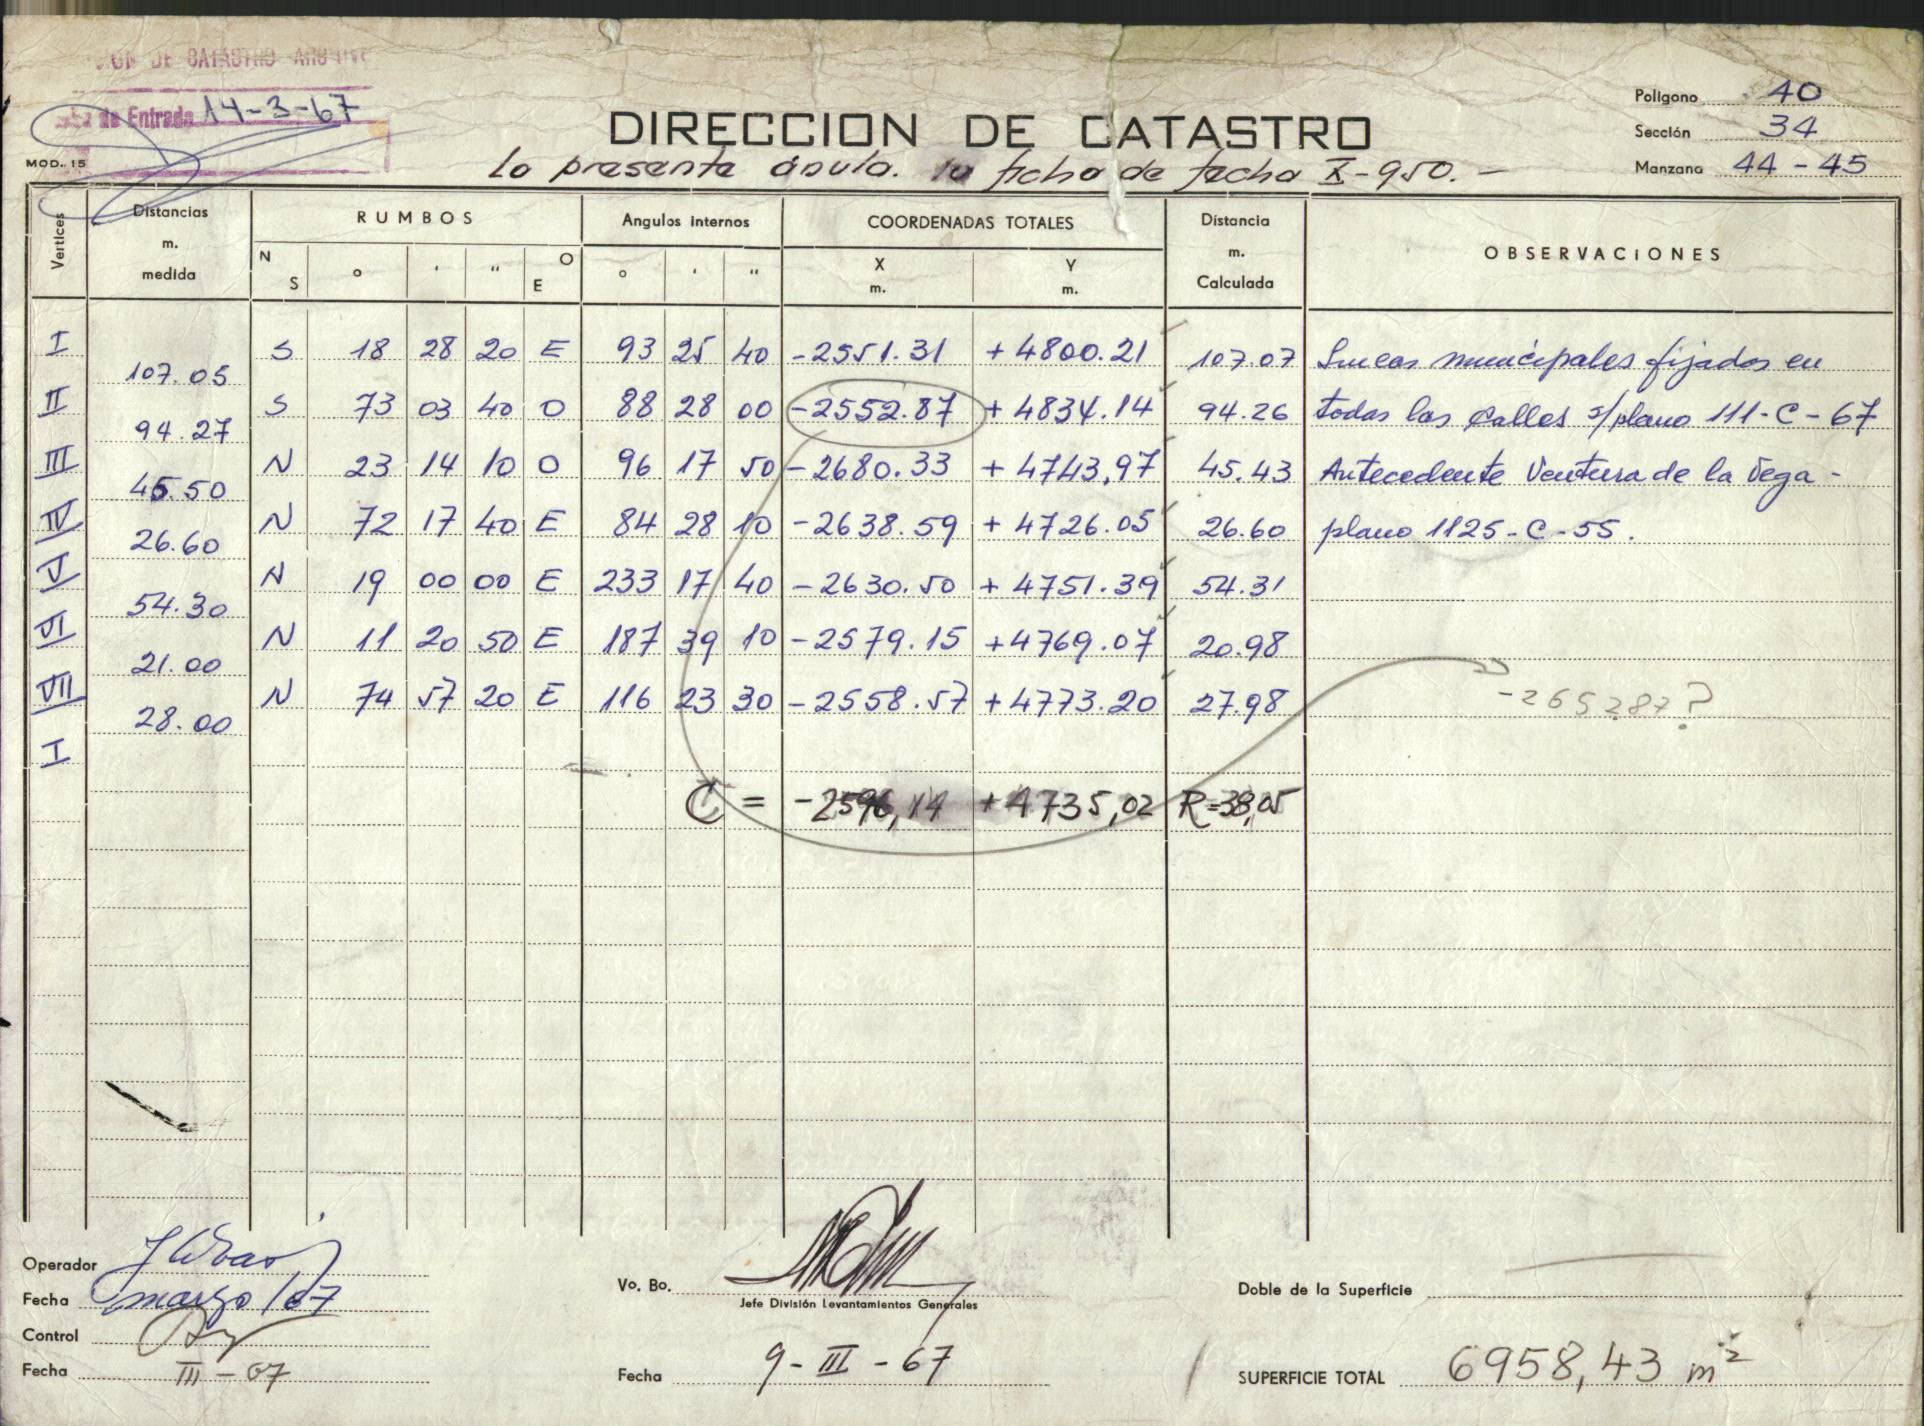 DE CATASTRO
de Entrada 14-3-67
MOD. 15
DIRECCION DE CATASTRO
La presente anula la ficha de fecha X-950.-
Poligono 40
Sección 34
Manzana 44-45
Vertices Distancias m. medida RUMBOS N S ° ' " O E Angulos internos ° ' " COORDENADAS TOTALES X m. Y m. Distancia m. Calculada OBSERVACIONES
I S 18 28 20 E 93 25 40 -2551.31 +4800.21 107.07 Lineas municipales fijadas en
107.05
II S 73 03 40 O 88 28 00 -2552.87 +4834.14 94.26 todas las calles s/plano 111-C-67
94.27
III N 23 14 10 O 96 17 50 -2680.33 +4743,97 45.43 Antecedente Ventura de la Vega -
45.50
IV N 72 17 40 E 84 28 10 -2638.59 +4726.05 26.60 plano 1125-C-55.
26.60
V N 19 00 00 E 233 17 40 -2630.50 +4751.39 54.31
54.30
VI N 11 20 50 E 187 39 10 -2579.15 +4769.07 20.98
21.00
VII N 74 57 20 E 116 23 30 -2558.57 +4773.20 27.98 -2652.87?
28.00
I
C = -2596,14 +4735,02 R=38,05
Operador
Fecha marzo/67
Control
Fecha III-67
Vo. Bo.
Jefe División Levantamientos Generales
Fecha 9-III-67
Doble de la Superficie
SUPERFICIE TOTAL 6958,43 m²